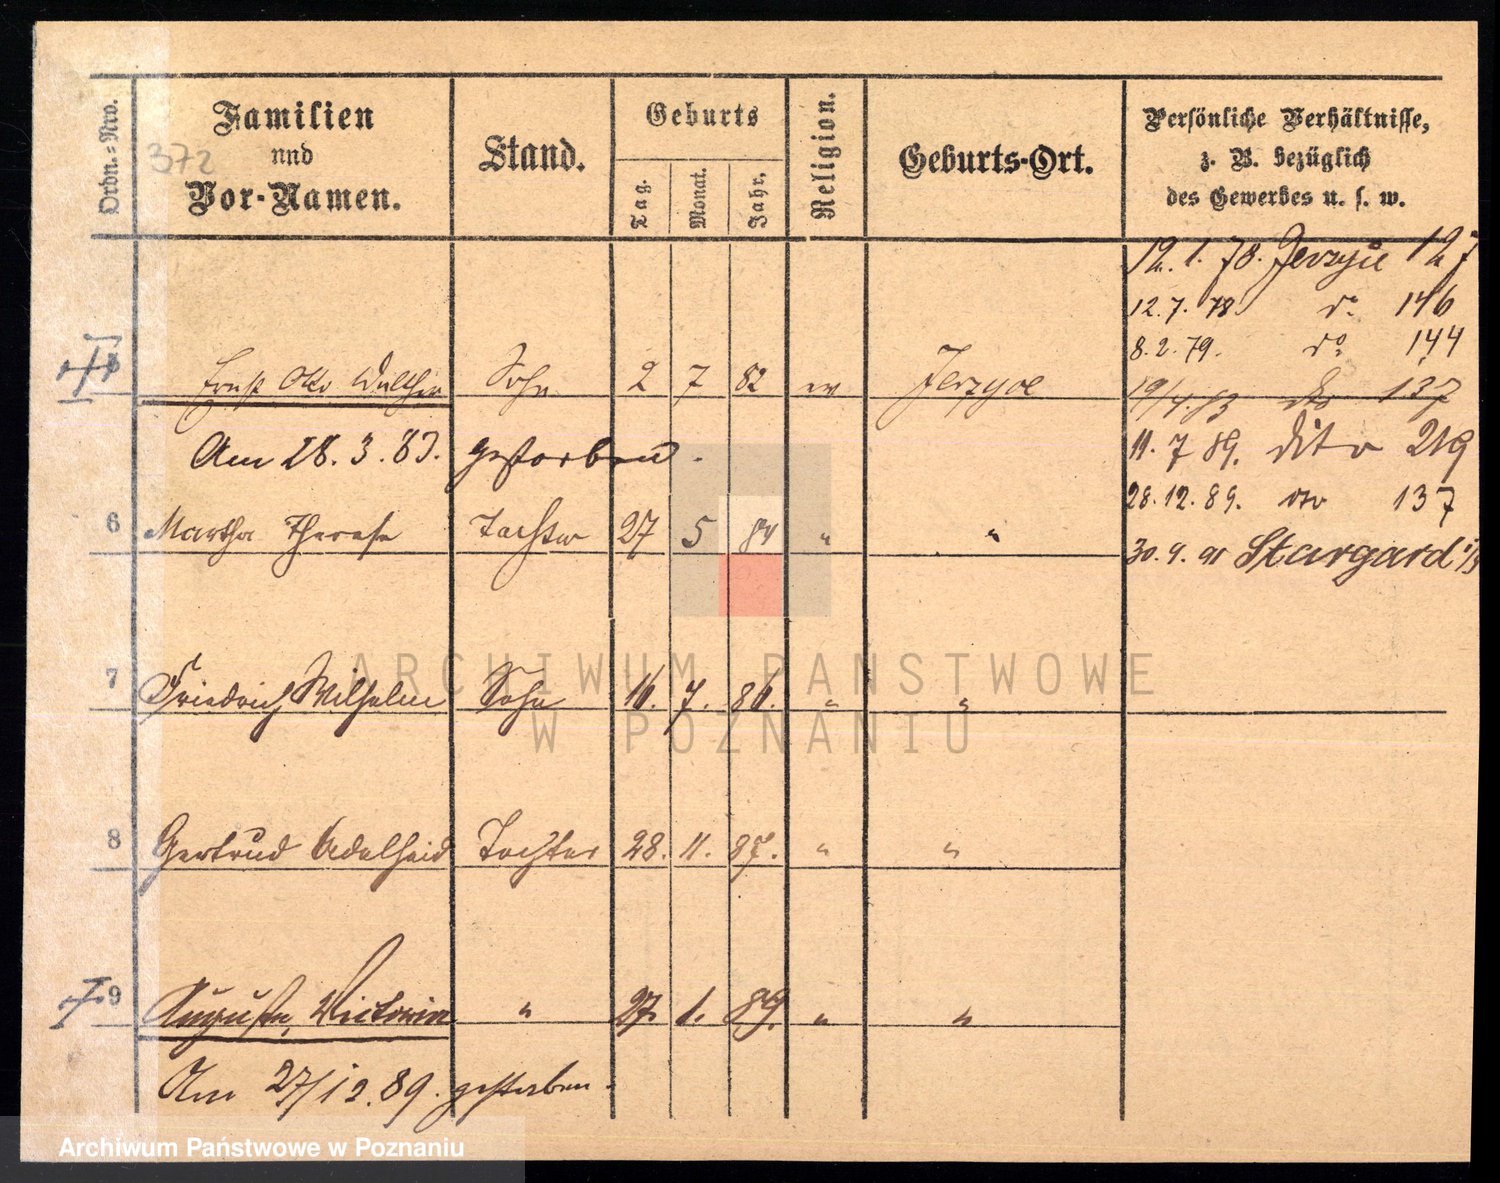 Ordn.-Nro.
Familien
und
Vor-Namen.
372
Stand.
Geburts
Tag.
Monat.
Jahr.
Religion.
Geburts-Ort.
Persönliche Verhältnisse,
z. B. bezüglich
des Gewerbes u. s. w.
12. 1. 78. Jerzyce 127
12. 7. 78. do 146
8. 2. 79. do 144
Ernst Otto Walther Sohn 2 7 82 ev Jerzyce
19/4. 83 dto 137
Am 28. 3. 83. gestorben.
11. 7 89. dito 219
28. 12. 89. dto 137
6 Martha Therese Tochter 27 5 84 " "
30. 9. 91 Stargard
7 Friedrich Wilhelm Sohn 16. 7. 86. " "
8 Gertrud Adelheid Tochter 28. 11. 87. " "
9 Auguste, Victoria " 27. 1. 89. " "
Am 27/12. 89. gestorben.
ARCHIWUM PAŃSTWOWE
W POZNANIU
Archiwum Państwowe w Poznaniu